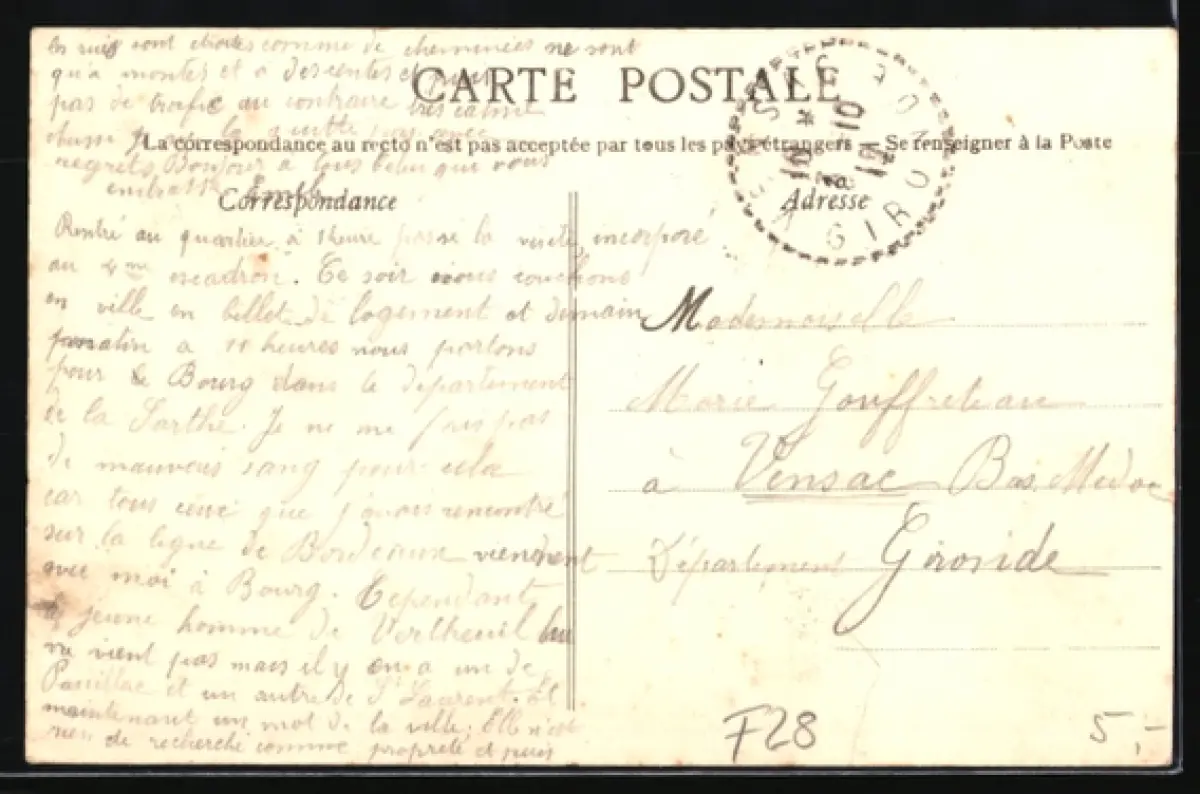 les rues sont étroites comme de cheminées ne sont
qu'a montes et a descentes et puis
pas de trafic au contraire très calme
aussi je la quitte sans avec
regrets. Bonjour a tous celui que vous
embrasse
CARTE POSTALE
La correspondance au recto n'est pas acceptée par tous les pays étrangers — Se renseigner à la Poste
Correspondance
Adresse
GIRONDE
Rentré au quartier à 1 heure passé la visite, incorporé
au 4me escadron. Ce soir nous couchons
en ville en billet de logement et demain
matin a 11 heures nous partons
pour le Bourg dans le département
de la Sarthe. Je ne me fais pas
de mauvais sang pour cela
car tous ceux que j'avais rencontré
sur la ligne de Bordeaux viennent
avec moi à Bourg. Cependant
le jeune homme de Vertheuil lui
ne vient pas mais il y en a un de
Pauillac et un autre de St Laurent. Et
maintenant un mot de la ville; Elle n'est
rien de recherché comme propreté et puis
Mademoiselle
Marie Gouffreteau
à Vensac Bas Médoc
Département Gironde
F28
5,-